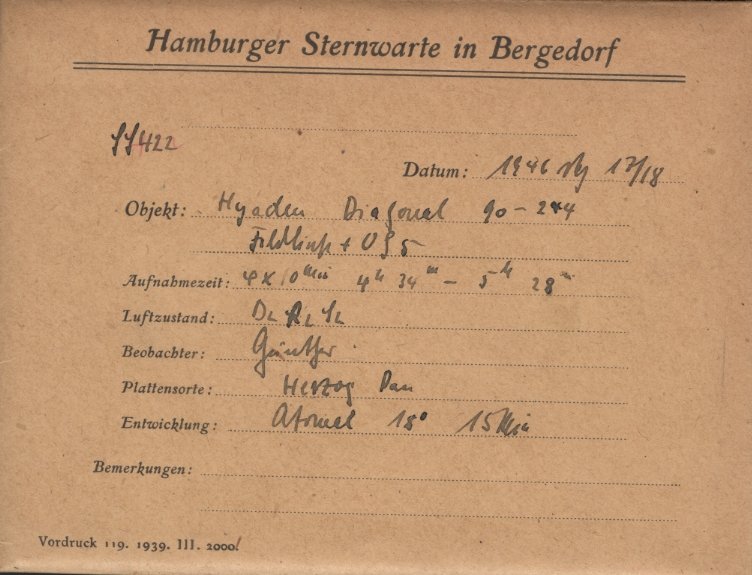 Hamburger Sternwarte in Bergedorf
422
Datum: 1946 17/18
Objekt: Hyaden Diagonal 90 – 244
Feldlinse +
Aufnahmezeit: 4 x 10 min 4h 34m – 5h 28m
Luftzustand:
Beobachter: Günther
Plattensorte: Herzog Pan
Entwicklung: Atomal 18° 15 Min
Bemerkungen:
Vordruck 119. 1939. III. 2000.